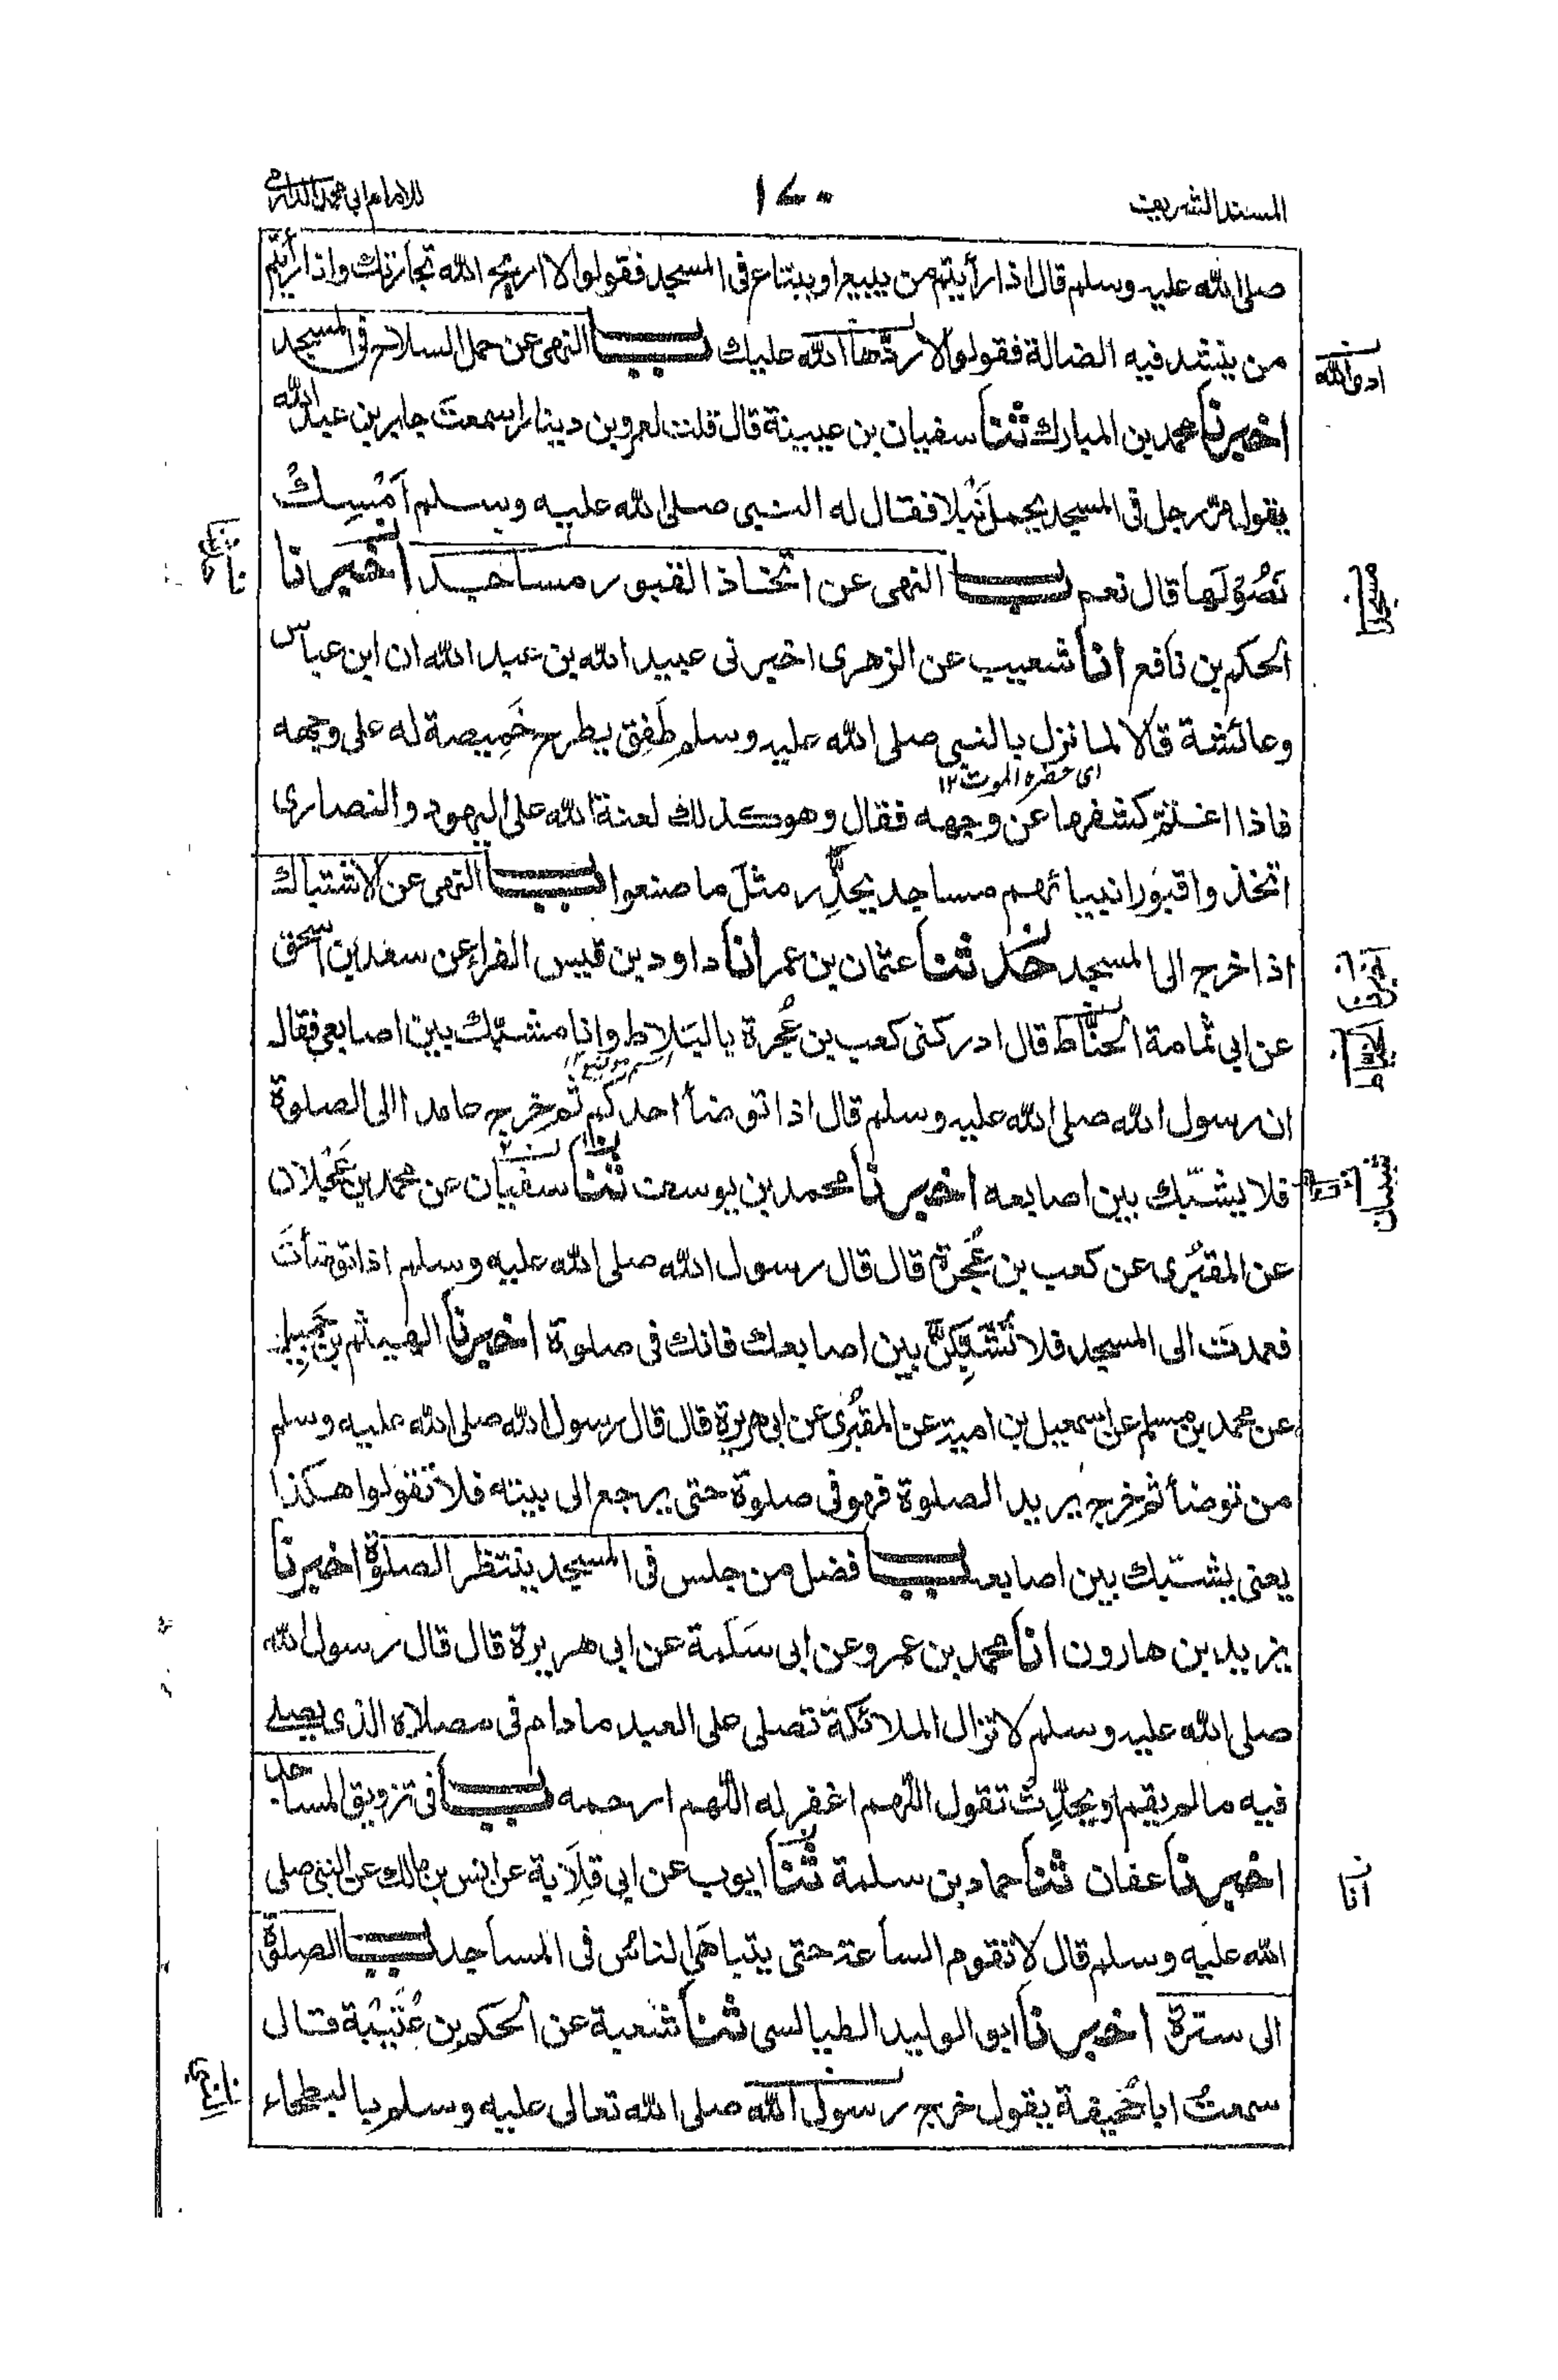 المسند الشريف
١٧٠
للامام ابي محمد الدارمي
صلى الله عليه وسلم قال اذا رأيتم من يبيع او يبتاع في المسجد فقولوا لا اربح الله تجارتك واذا رأيتم
من ينشد فيه الضالة فقولوا لا ردّها الله عليك باب النهي عن حمل السلاح في المسجد
اخبرنا محمد بن المبارك ثنا سفيان بن عيينة قال قلت لعمرو بن دينار اسمعتَ جابر بن عبد الله
يقول مرّ رجل في المسجد يحمل نَبْلا فقال له النبي صلى الله عليه وسلم اَمْسِكْ
نُصُوْلَها قال نعم باب النهي عن اتخاذ القبور مساجد اخبرنا
الحكم بن نافع انا شعيب عن الزهرى اخبرنى عبيد الله بن عبد الله ان ابن عباس
وعائشة قالا لما نزل بالنبى صلى الله عليه وسلم طَفِقَ يطرح خَمِيصة له على وجهه
اى حضره الموت ١٢
فاذا اغتمّ كشفها عن وجهه فقال وهو كذلك لعنة الله على اليهود والنصارى
اتخذوا قبور انبيائهم مساجد يحذِّر مثلَ ما صنعوا باب النهى عن الاشتباك
اذا خرج الى المسجد حدثنا عثمان بن عمر انا داود بن قيس الفراء عن سعد بن اسحق
عن ابى ثمامة الحنّاط قال ادركنى كعب بن عُجرة بالبَلاط وانا مشبّك بين اصابعى فقال
ان رسول الله صلى الله عليه وسلم قال اذا توضأ احدكم ثم خرج عامدا الى الصلوة
فلا يشبّك بين اصابعه اخبرنا محمد بن يوسف ثنا سفيان عن محمد بن عَجْلان
عن المقبُرى عن كعب بن عُجرة قال قال رسول الله صلى الله عليه وسلم اذا توضأتَ
فعمدتَ الى المسجد فلا تُشَبِّكَنَّ بين اصابعك فانك فى صلوة اخبرنا الهيثم بن جميل
عن محمد بن مسلم عن اسمعيل بن امية عن المقبُرى عن ابى هريرة قال قال رسول الله صلى الله عليه وسلم
من توضأ ثم خرج يريد الصلوة فهو فى صلوة حتى يرجع الى بيته فلا تقولوا هكذا
يعنى يشتبك بين اصابعه باب فضل من جلس فى المسجد ينتظر الصلوة اخبرنا
يزيد بن هارون انا محمد بن عمرو عن ابى سَلَمة عن ابى هريرة قال قال رسول الله
صلى الله عليه وسلم لا تزال الملائكة تصلى على العبد ما دام فى مصلاه الذى يصلى
فيه ما لم يقم او يحدِث تقول اللهم اغفر له اللهم ارحمه باب فى تزويق المساجد
اخبرنا عفان ثنا حماد بن سلمة ثنا ايوب عن ابى قِلَابة عن انس بن مالك عن النبى صلى
الله عليه وسلم قال لا تقوم الساعة حتى يتباهى الناس فى المساجد باب الصلوة
الى سترة اخبرنا ابو الوليد الطيالسى ثنا شعبة عن الحكم بن عُتَيْبة قال
سمعتُ ابا جُحيفة يقول خرج رسول الله صلى الله تعالى عليه وسلم بالبطحاء
ادى الله
مسجدا
اخبرنا
الخياط
شيبان
انا